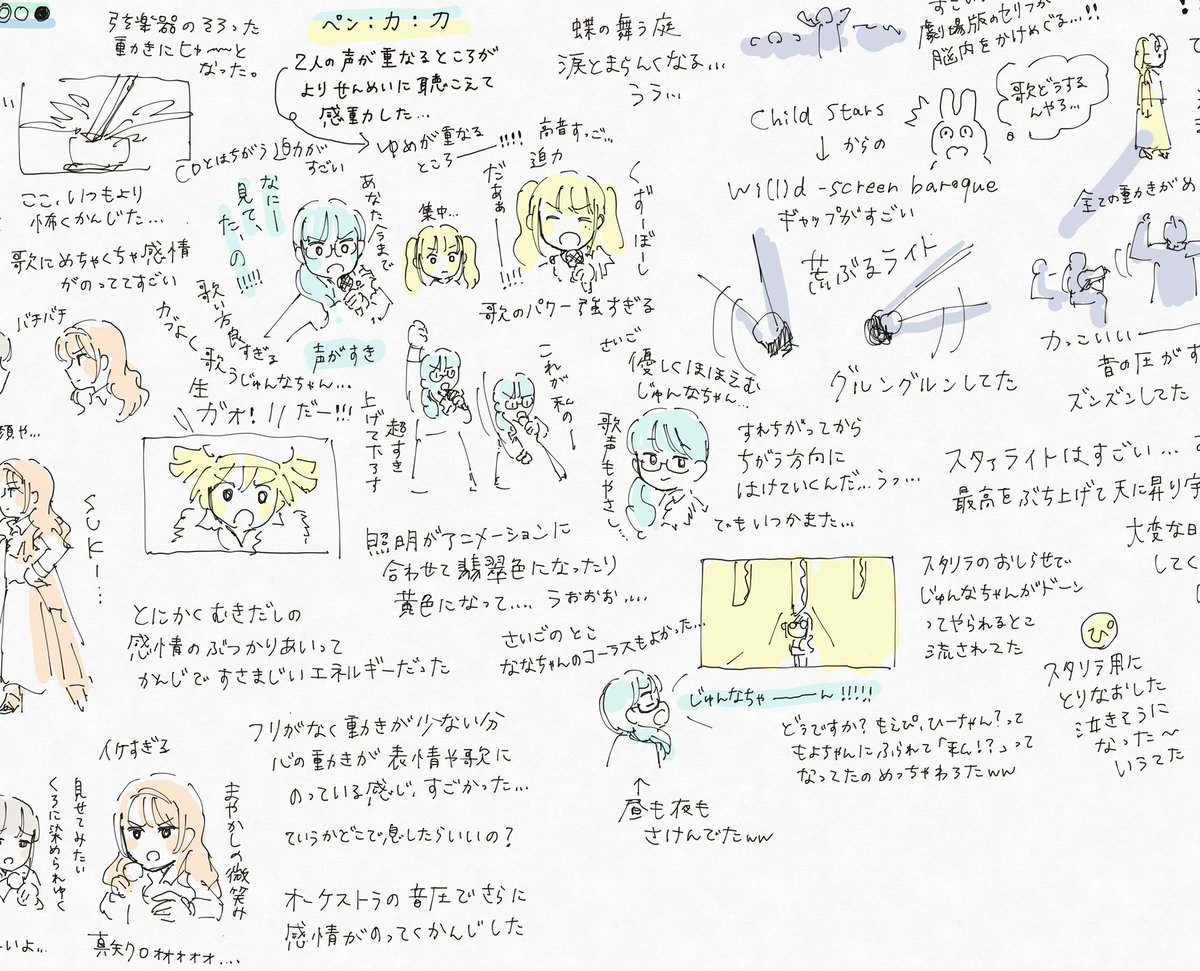 弦楽器のそろった
動きにヒャ〜〜と
なった。
ここ、いつもより
怖くかんじた…
歌にめちゃくちゃ感情
がのっててすごい
バチバチ
ペン:力:刀
2人の声が重なるところが
よりせんめいに聴こえて
感動した…
ゆめが重なる
ところ──!!!!
CDとはちがう迫力が
すごい
なにー
見て、
た、の
!!!!!
あなた今まで
集中…
高音すっご…
迫力
だぁぁ
──!!!!
くずーぼーし
歌のパワー強すぎる
歌い方良すぎる
力づよく
歌うじゅんなちゃん…
声がすき
生
ガオ!!!だー!!!
上げてたろす
超すき
これが私のー
さいご
優しくほほえむ
じゅんなちゃん…
歌声もやさし…
すれちがってから
ちがう方向に
はけていくんだ…うっ…
でもいつかまた…
蝶の舞う庭
涙とまらんくなる…
うぅ…
劇場版のセリフが
脳内をかけめぐる…!!
歌どうする
んやろ…
Child Stars
↓ からの
Wi(l)d-screen baroque
ギャップがすごい
荒ぶるライト
グルングルンしてた
全ての動きがめ
かっこいい
音の圧がす
ズンズンしてた
スタァライトはすごい…
最高をぶち上げて天に昇り
大変な日
してく
SUKI…
照明がアニメーションに
合わせて翡翠色になったり
黄色になって…うおおお…
とにかくむきだしの
感情のぶつかりあいって
かんじですさまじいエネルギーだった
さいごのとこ
ななちゃんのコーラスもよかった…
スタリラのおしらせで
じゅんなちゃんがドーン
ってやられるとこ
流されてた
ぴ
スタリラ用に
とりなおした
泣きそうに
なった〜
いうてた
じゅんなちゃ──ん!!!!!
どうですか?もえぴ、ひーちゃん?って
もよちゃんにふられて「私!?」って
なってたのめっちゃわろたww
↑
昼も夜も
さけんでたww
フリがなく動きが少ない分
心の動きが表情や歌に
のっている感じ、すごかった…
ていうかどこで息したらいいの?
オーケストラの音圧でさらに
感情がのってくかんじした
イケすぎる
見せてみたい
くろに染められゆく
まやかしの微笑み
真矢クロォォォォォ…